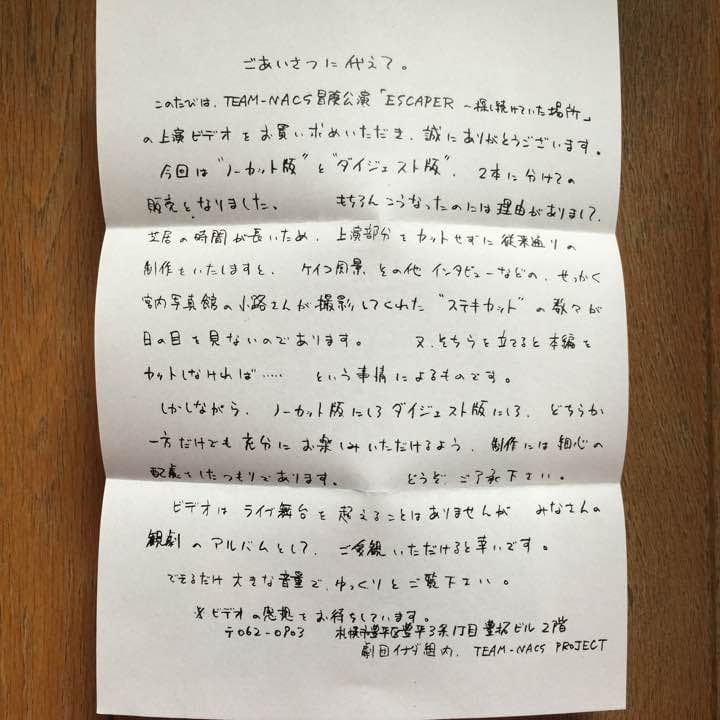 ごあいさつに代えて。
このたびは、TEAM-NACS冒険公演「ESCAPER 〜探し続けていた場所」
の上演ビデオをお買い求めいただき、誠にありがとうございます。
今回は"ノーカット版"と"ダイジェスト版"、2本に分けての
販売となりました。 もちろんこうなったのには理由がありまして、
芝居の時間が長いため、上演部分をカットせずに従来通りの
制作をいたしますと、ケイコ風景、その他インタビューなどの、せっかく
宮内写真館の小路さんが撮影してくれた"ステキカット"の数々が
日の目を見ないのであります。 又、そちらを立てると本編を
カットしなければ…… という事情によるものです。
しかしながら、ノーカット版にしろダイジェスト版にしろ、どちらか
一方だけでも充分にお楽しみいただけるよう、制作には細心の
配慮をしたつもりであります。 どうぞ、ご了承下さい。
ビデオはライブ舞台を超えることはありませんが みなさんの
観劇のアルバムとして、ご愛観いただけると幸いです。
できるだけ大きな音量で、ゆっくりとご覧下さい。
※ビデオの感想をお待ちしています。
〒062-0903 札幌市豊平区豊平3条1丁目 豊拓ビル2階
劇団イナダ組内、TEAM-NACS PROJECT